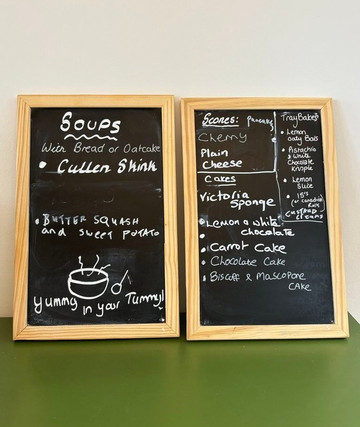 Soups
With Bread or Oatcake
• Cullen Skink
• BUTTER SQUASH
and SWEET POTATO
Yummy in your Tummy!
Scones: Pancakes
Cherry
Plain
Cheese
Cakes
Victoria
Sponge
• Lemon & white
chocolate
• Carrot Cake
• Chocolate Cake
• Biscoff & Mascopone
CAKE
TrayBakes
• Lemon
oaty Bars
• Pistachio
& White
Chocolate
• Lemon
Slice
• 15's
CUSTARD
CREAMS